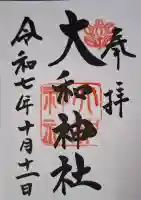 奉拝
大和神社
令和七年十月十一日